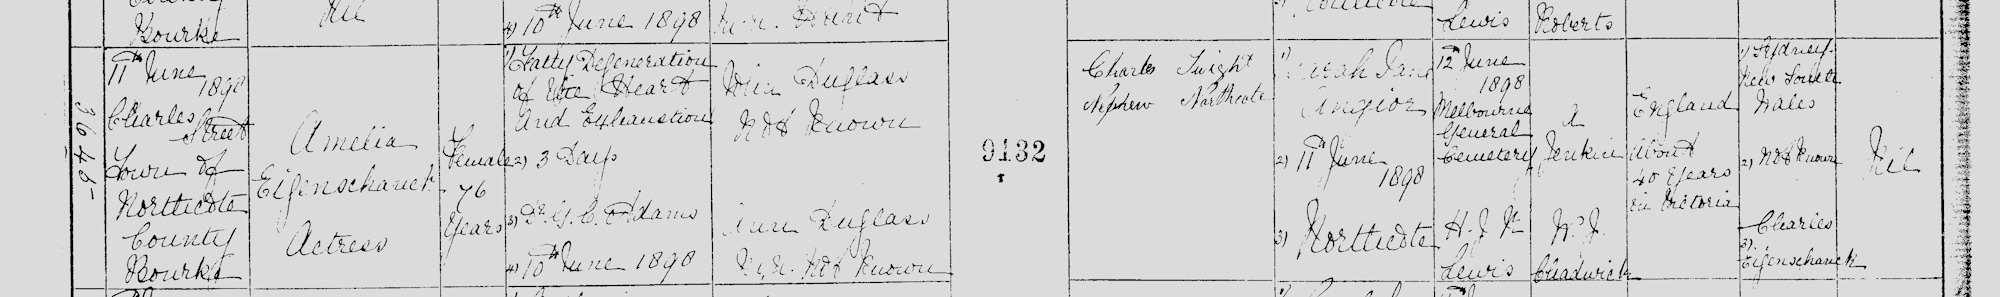 Bourke
Nil
4) 10th June 1898
Lewis
Roberts
3645
11th June
1898
Charles
Street
Town of
Northcote
County
Bourke
Amelia
Eigenschanck
Actress
Female
76
Years
1) Fatty Degeneration
of the Heart
and Exhaustion
2) 3 Days
3) Dr. G. C. Adams
4) 10th June 1898
Duglass
Not Known
Ann Duglass
M.N. Not Known
9132
Charles Twight
Nephew Northcote
1) Sarah Jane
Angior
2) 11th June
1898
3) Northcote
12th June
1898
Melbourne
General
Cemetery
H. J. W.
Lewis
A
Jenkin
W. J.
Chadwick
England
About
40 Years
in Victoria
1) Sydney
New South
Wales
2) Not Known
3) Charles
Eigenschanck
Nil